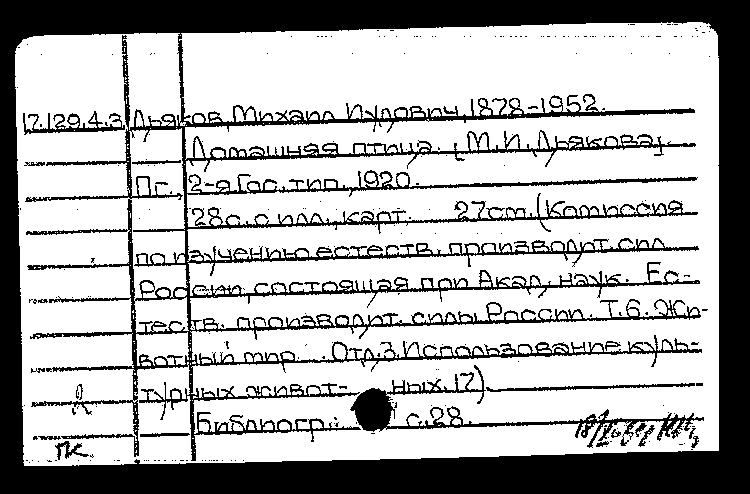 17.129.4.3 Дьяков, Михаил Иудович, 1878-1952.
Домашняя птица. [М.И. Дьякова].
Пг., 2-я Гос. тип., 1920.
28с. с илл., карт. 27см. (Комиссия
по изучению естеств. производит. сил
России, состоящая при Акад. наук. Ес-
теств. производит. силы России. Т. 6. Жи-
вотный мир. Отд. 3. Использование куль-
турных живот- ных. 17).
Библиогр.: с. 28.
ПК